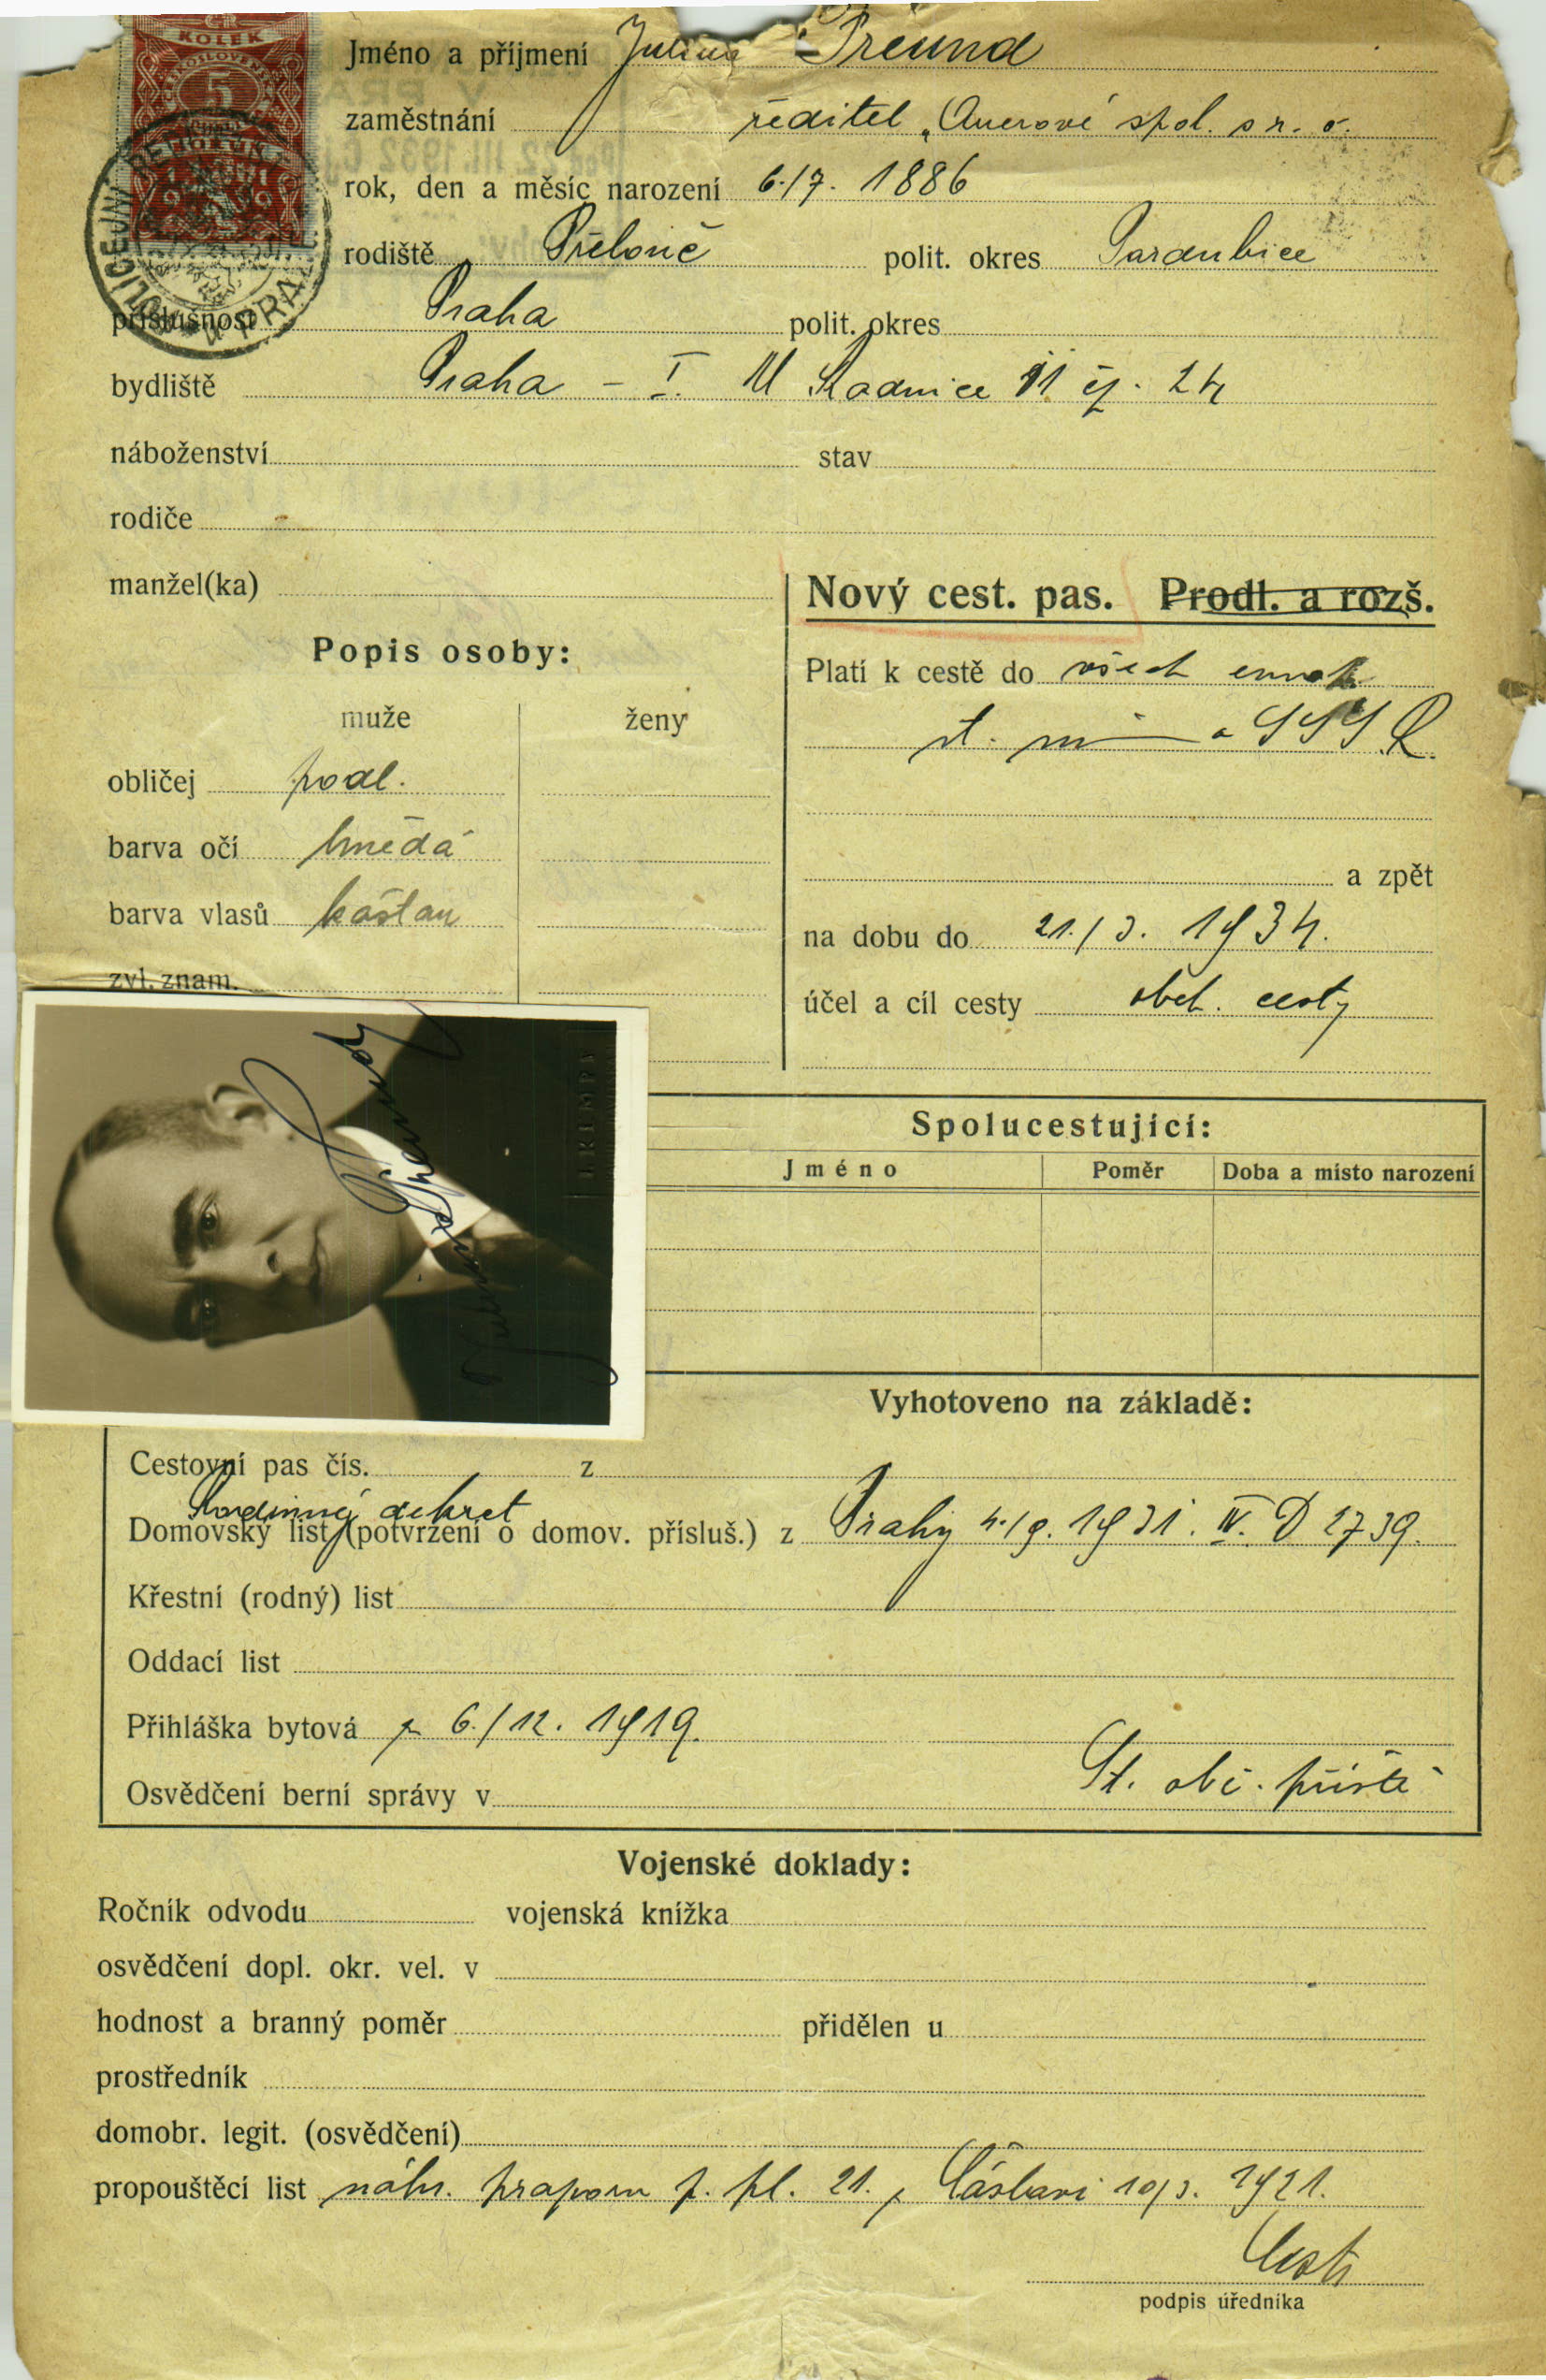 KOLEK
5
1919
POLICEJNÍ ŘEDITELSTVÍ
V PRAZE
Jméno a příjmení Julius Freund
zaměstnání ředitel „Auerové spol. s r. o.
rok, den a měsíc narození 6./7. 1886
rodiště Přelouč polit. okres Pardubice
příslušnost Praha polit. okres
bydliště Praha – I. U Radnice 11 čj. 24
náboženství stav
rodiče
manžel(ka)
Nový cest. pas. Prodl. a rozš.
Popis osoby:
muže ženy
obličej podl.
barva očí hnědá
barva vlasů kaštan
zvl. znam.
Platí k cestě do všech evrop.
st. a SSSR.
a zpět
na dobu do 21./3. 1934.
účel a cíl cesty obch. cesty
Julius Freund
Spolucestující:
Jméno Poměr Doba a místo narození
Vyhotoveno na základě:
Cestovní pas čís. z
dekret
Domovský list (potvrzení o domov. přísluš.) z Prahy 4./9. 1931. IV. D 2739.
Křestní (rodný) list
Oddací list
Přihláška bytová z 6./12. 1919.
St. obč. příště
Osvědčení berní správy v
Vojenské doklady:
Ročník odvodu vojenská knížka
osvědčení dopl. okr. vel. v
hodnost a branný poměr přidělen u
prostředník
domobr. legit. (osvědčení)
propouštěcí list náhr. prapom p. pl. 21. Čáslavi 10/3. 1921.
podpis úředníka